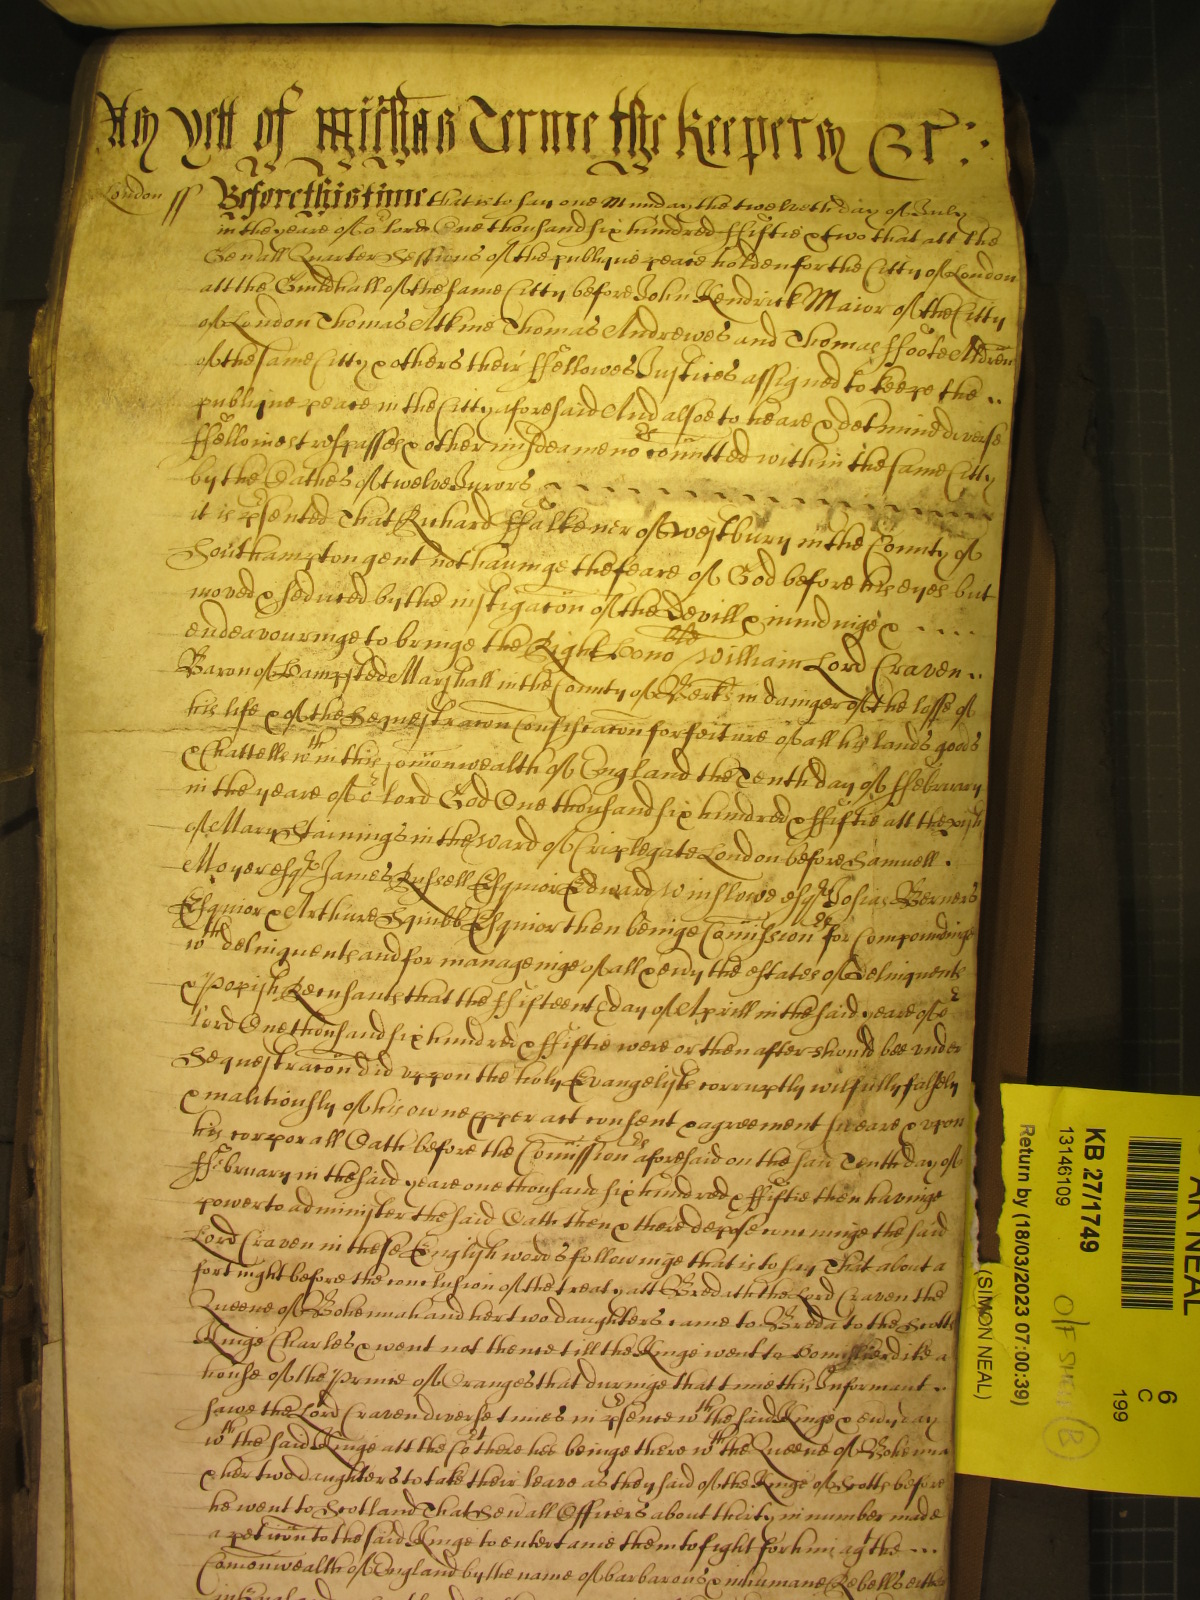 As yett of Michas Terme the Keepers &c:
London ss Before this time that is to say one Munday the twelveth day of July
in the yeare of or lord One thousand six hundred ffiftie & two that att the
Genall Quarter Sessions of the publique peace holden for the Citty of London
att the Guildhall of the same Citty before John Kendrick Maior of the Citty
of London Thomas Atkins Thomas Andrewes and Thomas ffoote Aldren
of the same Citty & others their ffellowes Justices assigned to keepe the
publique peace in the Citty aforesaid And alsoe to heare & detmine diverse
ffellonies trespasses & other misdemeanors comitted within the same Citty
by the Oathes of twelve Jurors
it is psented That Richard ffalkener of Westbury in the County of
Southampton gent not haveinge the feare of God before his eyes but
moved & seduced by the instigacon of the Devill & mindinge &
endeavouringe to bringe the Right hono ble William Lord Craven
Baron of Hampsted Marshall in the County of Berks in dainger of the losse of
his life & of the Sequestracon Confiscacon forfeiture of all his lands goods
& Chattells wth in this Comonwealth of England the Tenth day of ffebruary
in the yeare of or lord God One thousand six hundred & ffiftie att the pish
of Mary Stainings in the Ward of Criplegate London before Samuell
Moyer esqr James Russell Esquior Edward Winslowe esqr Josias Berners
Esquior & Arthure Squibb Esquior then beinge Comissionrs for Compoundinge
wth delinquents and for manageinge of all & evry the estates of Delinquents
& Popish Recusants that the ffifteenth day of Aprill in the said yeare of or
lord One thousand six hundred & ffiftie were or then after should bee under
Sequestracon did uppon the holy Evangelists corruptly wilfully falsely
& malitiously of his owne pper act consent & agreement sweare & upon
his corporall Oath before the Comissionrs aforesaid on the said Tenth day of
ffebruary in the said yeare one thousand six hundred & ffiftie then havinge
power to administer the said Oath then & there depose concerninge the said
Lord Craven in these English words followinge that is to say That about a
fortnight before the conclusion of the treaty att Breda th the Lord Craven the
Queene of Bohemiah and her two daughters came to Breda to the Scotts
Kinge Charles & went not thence till the Kinge went to a
house of the Prince of Oranges that duringe that time this Informant
sawe the Lord Craven diverse times in psence wth the said Kinge & evry day
wth the said Kinge att the Cot there hee beinge there wth the Queene of Bohemia
& her two daughters to take their leave as they said of the Kinge of Scotts before
he went to Scotland That sevall Officers about thirty in number made
a peticon to the said Kinge to entertaine them to fight for him agt the
Comonwealth of England by the name of barbarous & inhumane Rebells either
in England
NEAL
KB 27/1749
13146109
Return by (18/03/2023 07:00:39)
(SIMON NEAL)
6
C
199
B